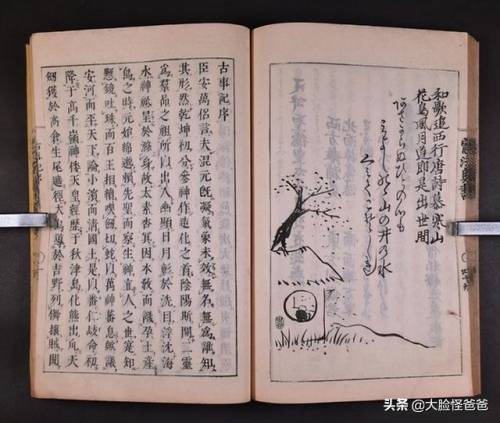 和歌追西行唐詩慕寒山
花鳥風月道即是出世間
山の井の水
古事記序
臣安萬侶言夫混元既凝氣象未效無名無爲誰知
其形然乾坤初分參神作造化之首陰陽斯開二靈
爲群品之祖所以出入幽顯日月彰於洗目浮沈海
水神祇呈於滌身故太素杳冥因本教而識孕土產
島之時元始綿邈賴先聖而察生神立人之世寔知
懸鏡吐珠而百王相續喫劒切蛇以萬神蕃息歟議
安河而平天下論小濱而清國土是以番仁岐命初
降于高千嶺神倭天皇經歷于秋津島化熊出爪天
劒獲於高倉生尾遮徑大烏導於吉野列儛攘賊聞
头条 @大脸怪爸爸